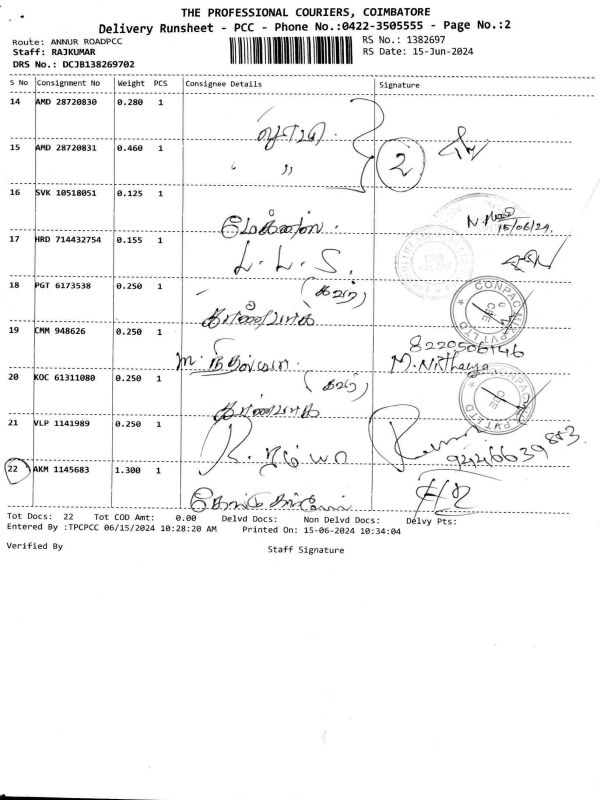 THE PROFESSIONAL COURIERS, COIMBATORE
Delivery Runsheet - PCC - Phone No.:0422-3505555 - Page No.:2
Route: ANNUR ROADPCC
Staff: RAJKUMAR
DRS No.: DCJB138269702
RS No.: 1382697
RS Date: 15-Jun-2024
S No Consignment No Weight PCS Consignee Details Signature
14 AMD 28720830 0.280 1
15 AMD 28720831 0.460 1
" 2
16 SVK 10518051 0.125 1
15/06/24
17 HRD 714432754 0.155 1
L. L. S.
18 PGT 6173538 0.250 1
(கவர்)
19 CMM 948626 0.250 1
8220506146
M. Nithaya
20 KOC 61311080 0.250 1
(கவர்)
21 VLP 1141989 0.250 1
R.
9446639883
22 AKM 1145683 1.300 1
Tot Docs: 22 Tot COD Amt: 0.00 Delvd Docs: Non Delvd Docs: Delvy Pts:
Entered By :TPCPCC 06/15/2024 10:28:20 AM Printed On: 15-06-2024 10:34:04
Verified By
Staff Signature